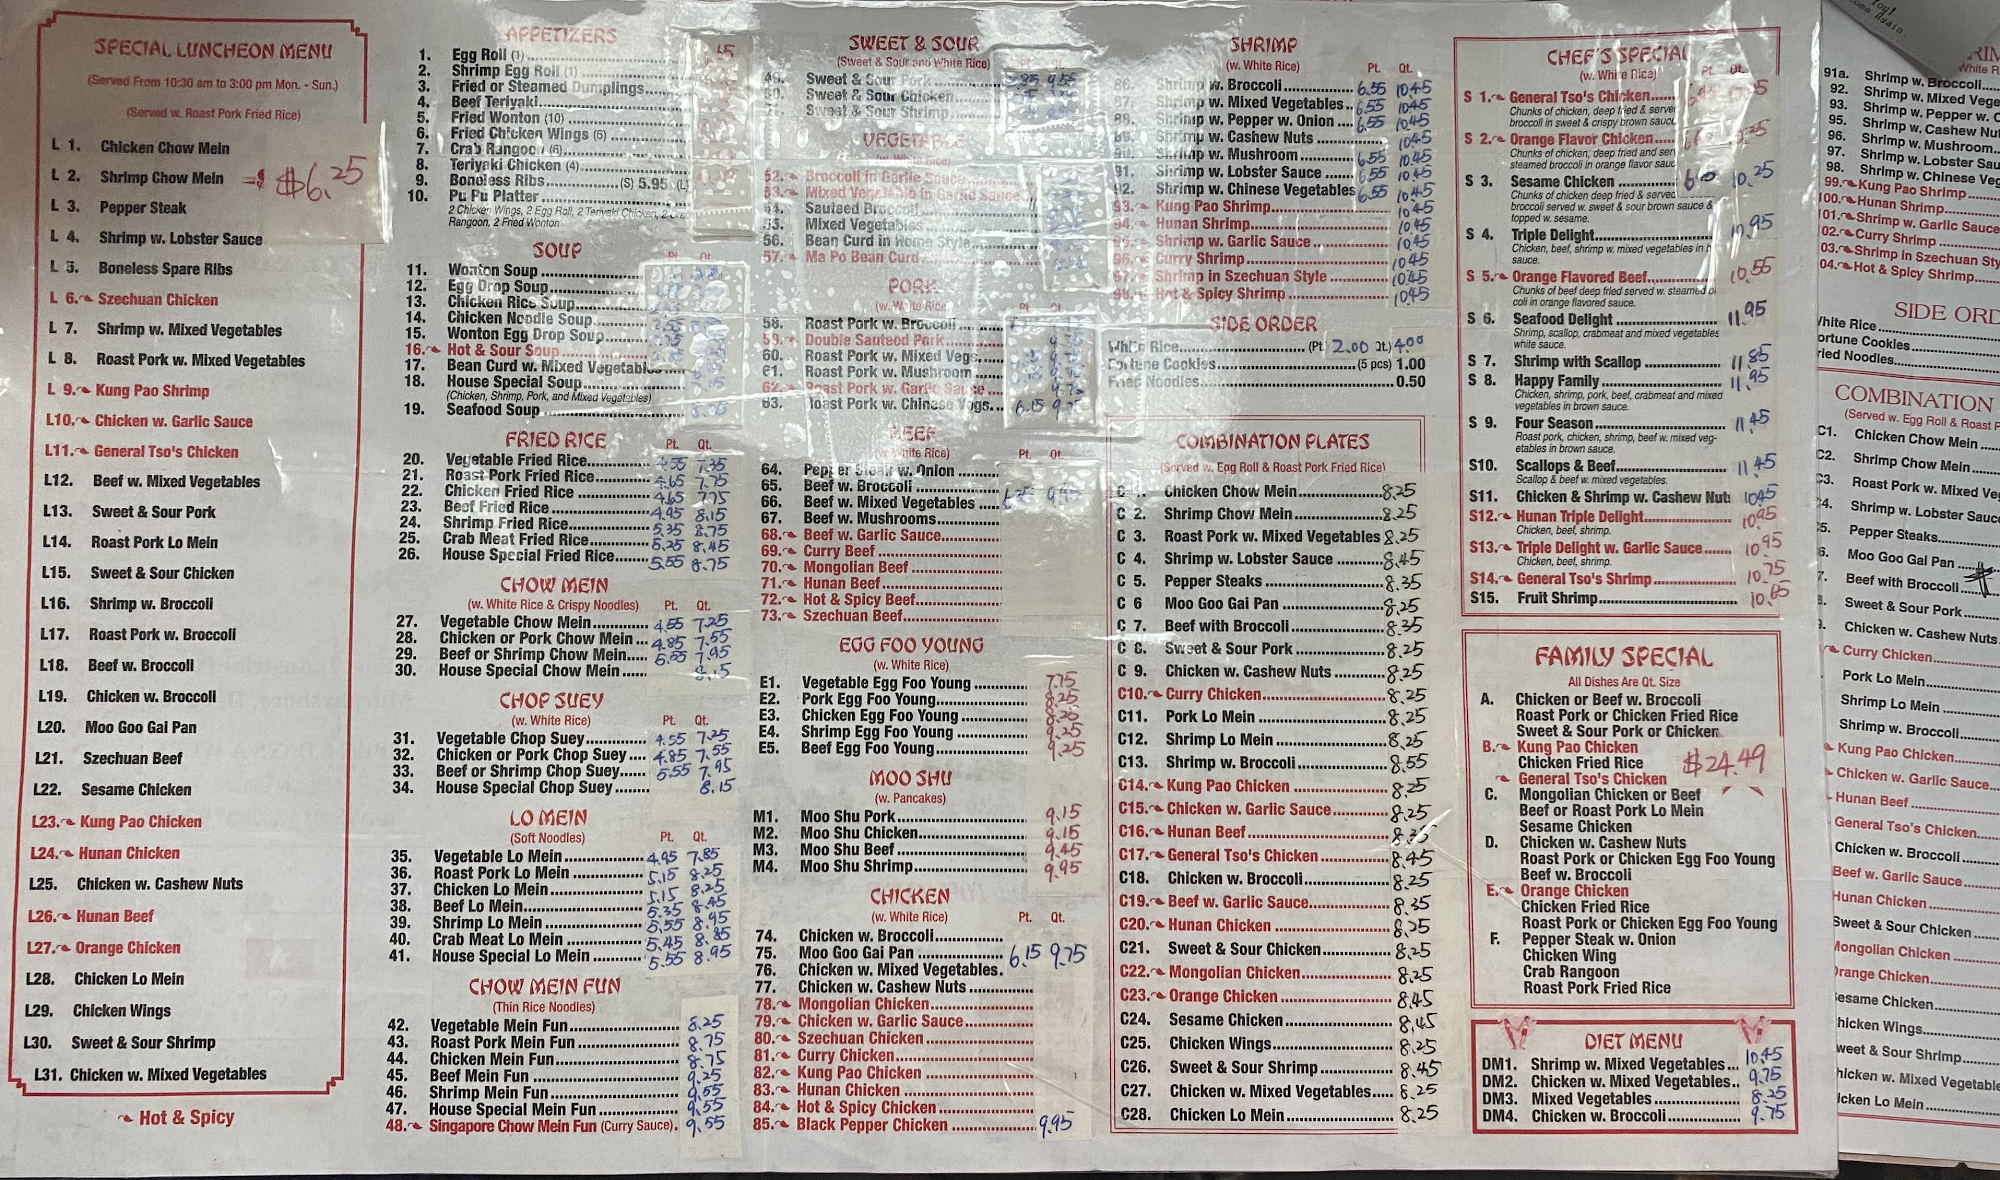 SPECIAL LUNCHEON MENU
(Served From 10:30 am to 3:00 pm Mon. - Sun.)
(Served w. Roast Pork Fried Rice)
L 1. Chicken Chow Mein
L 2. Shrimp Chow Mein $6.25
L 3. Pepper Steak
L 4. Shrimp w. Lobster Sauce
L 5. Boneless Spare Ribs
L 6. Szechuan Chicken
L 7. Shrimp w. Mixed Vegetables
L 8. Roast Pork w. Mixed Vegetables
L 9. Kung Pao Shrimp
L10. Chicken w. Garlic Sauce
L11. General Tso's Chicken
L12. Beef w. Mixed Vegetables
L13. Sweet & Sour Pork
L14. Roast Pork Lo Mein
L15. Sweet & Sour Chicken
L16. Shrimp w. Broccoli
L17. Roast Pork w. Broccoli
L18. Beef w. Broccoli
L19. Chicken w. Broccoli
L20. Moo Goo Gai Pan
L21. Szechuan Beef
L22. Sesame Chicken
L23. Kung Pao Chicken
L24. Hunan Chicken
L25. Chicken w. Cashew Nuts
L26. Hunan Beef
L27. Orange Chicken
L28. Chicken Lo Mein
L29. Chicken Wings
L30. Sweet & Sour Shrimp
L31. Chicken w. Mixed Vegetables
Hot & Spicy
APPETIZERS
1. Egg Roll (1)
2. Shrimp Egg Roll (1)
3. Fried or Steamed Dumplings
4. Beef Teriyaki
5. Fried Wonton (10)
6. Fried Chicken Wings (6)
7. Crab Rangoon (6)
8. Teriyaki Chicken (4)
9. Boneless Ribs (S) 5.95 (L)
10. Pu Pu Platter
2 Chicken Wings, 2 Egg Roll, 2 Teriyaki Chicken, 2 Crab
Rangoon, 2 Fried Wonton
SOUP
Pt. Qt.
11. Wonton Soup
12. Egg Drop Soup
13. Chicken Rice Soup
14. Chicken Noodle Soup
15. Wonton Egg Drop Soup
16. Hot & Sour Soup
17. Bean Curd w. Mixed Vegetables
18. House Special Soup
(Chicken, Shrimp, Pork, and Mixed Vegetables)
19. Seafood Soup
FRIED RICE Pt. Qt.
20. Vegetable Fried Rice 4.55 7.35
21. Roast Pork Fried Rice 4.65 7.75
22. Chicken Fried Rice 4.65 7.75
23. Beef Fried Rice 4.95 8.15
24. Shrimp Fried Rice 5.35 8.75
25. Crab Meat Fried Rice 5.25 8.45
26. House Special Fried Rice 5.55 8.75
CHOW MEIN
(w. White Rice & Crispy Noodles) Pt. Qt.
27. Vegetable Chow Mein 4.55 7.25
28. Chicken or Pork Chow Mein 4.85 7.55
29. Beef or Shrimp Chow Mein 5.55 7.95
30. House Special Chow Mein 8.15
CHOP SUEY
(w. White Rice) Pt. Qt.
31. Vegetable Chop Suey 4.55 7.25
32. Chicken or Pork Chop Suey 4.85 7.55
33. Beef or Shrimp Chop Suey 5.55 7.95
34. House Special Chop Suey 8.15
LO MEIN
(Soft Noodles) Pt. Qt.
35. Vegetable Lo Mein 4.95 7.85
36. Roast Pork Lo Mein 5.15 8.25
37. Chicken Lo Mein 5.15 8.25
38. Beef Lo Mein 5.35 8.45
39. Shrimp Lo Mein 5.55 8.95
40. Crab Meat Lo Mein 5.45 8.85
41. House Special Lo Mein 5.55 8.95
CHOW MEIN FUN
(Thin Rice Noodles)
42. Vegetable Mein Fun 8.25
43. Roast Pork Mein Fun 8.75
44. Chicken Mein Fun 8.75
45. Beef Mein Fun 9.25
46. Shrimp Mein Fun 9.55
47. House Special Mein Fun 9.55
48. Singapore Chow Mein Fun (Curry Sauce). 9.55
SWEET & SOUR
(Sweet & Sour and White Rice) Pt. Qt.
49. Sweet & Sour Pork
50. Sweet & Sour Chicken
51. Sweet & Sour Shrimp
VEGETABLE
52. Broccoli in Garlic Sauce
53. Mixed Vegetable in Garlic Sauce
54. Sauteed Broccoli
55. Mixed Vegetables
56. Bean Curd in Home Style
57. Ma Po Bean Curd
PORK
(w. White Rice) Pt. Qt.
58. Roast Pork w. Broccoli
59. Double Sauteed Pork
60. Roast Pork w. Mixed Vegs.
61. Roast Pork w. Mushroom
62. Roast Pork w. Garlic Sauce
63. Roast Pork w. Chinese Vegs. 6.15 9.75
BEEF
(w. White Rice) Pt. Qt.
64. Pepper Steak w. Onion
65. Beef w. Broccoli
66. Beef w. Mixed Vegetables
67. Beef w. Mushrooms
68. Beef w. Garlic Sauce
69. Curry Beef
70. Mongolian Beef
71. Hunan Beef
72. Hot & Spicy Beef
73. Szechuan Beef
EGG FOO YOUNG
(w. White Rice)
E1. Vegetable Egg Foo Young 7.75
E2. Pork Egg Foo Young 8.25
E3. Chicken Egg Foo Young 8.25
E4. Shrimp Egg Foo Young 9.25
E5. Beef Egg Foo Young 9.25
MOO SHU
(w. Pancakes)
M1. Moo Shu Pork 9.15
M2. Moo Shu Chicken 9.15
M3. Moo Shu Beef 9.45
M4. Moo Shu Shrimp 9.95
CHICKEN
(w. White Rice) Pt. Qt.
74. Chicken w. Broccoli
75. Moo Goo Gai Pan 6.15 9.75
76. Chicken w. Mixed Vegetables.
77. Chicken w. Cashew Nuts
78. Mongolian Chicken
79. Chicken w. Garlic Sauce
80. Szechuan Chicken
81. Curry Chicken
82. Kung Pao Chicken
83. Hunan Chicken
84. Hot & Spicy Chicken
85. Black Pepper Chicken 9.95
SHRIMP
(w. White Rice) Pt. Qt.
86. Shrimp w. Broccoli 6.55 10.45
87. Shrimp w. Mixed Vegetables 6.55 10.45
88. Shrimp w. Pepper w. Onion 6.55 10.45
89. Shrimp w. Cashew Nuts 10.45
90. Shrimp w. Mushroom 6.55 10.45
91. Shrimp w. Lobster Sauce 6.55 10.45
92. Shrimp w. Chinese Vegetables 6.55 10.45
93. Kung Pao Shrimp 10.45
94. Hunan Shrimp 10.45
95. Shrimp w. Garlic Sauce 10.45
96. Curry Shrimp 10.45
97. Shrimp in Szechuan Style 10.45
98. Hot & Spicy Shrimp 10.45
SIDE ORDER
White Rice (Pt. 2.00 Qt.) 4.00
Fortune Cookies (5 pcs) 1.00
Fried Noodles 0.50
COMBINATION PLATES
(Served w. Egg Roll & Roast Pork Fried Rice)
C 1. Chicken Chow Mein 8.25
C 2. Shrimp Chow Mein 8.25
C 3. Roast Pork w. Mixed Vegetables 8.25
C 4. Shrimp w. Lobster Sauce 8.45
C 5. Pepper Steaks 8.35
C 6 Moo Goo Gai Pan 8.25
C 7. Beef with Broccoli 8.35
C 8. Sweet & Sour Pork 8.25
C 9. Chicken w. Cashew Nuts 8.25
C10. Curry Chicken 8.25
C11. Pork Lo Mein 8.25
C12. Shrimp Lo Mein 8.25
C13. Shrimp w. Broccoli 8.55
C14. Kung Pao Chicken 8.25
C15. Chicken w. Garlic Sauce 8.25
C16. Hunan Beef 8.35
C17. General Tso's Chicken 8.45
C18. Chicken w. Broccoli 8.25
C19. Beef w. Garlic Sauce 8.35
C20. Hunan Chicken 8.25
C21. Sweet & Sour Chicken 8.25
C22. Mongolian Chicken 8.25
C23. Orange Chicken 8.45
C24. Sesame Chicken 8.45
C25. Chicken Wings 8.25
C26. Sweet & Sour Shrimp 8.45
C27. Chicken w. Mixed Vegetables 8.25
C28. Chicken Lo Mein 8.25
CHEF'S SPECIAL
(w. White Rice) Pt. Qt.
S 1. General Tso's Chicken
Chunks of chicken, deep fried & served
broccoli in sweet & crispy brown sauce
S 2. Orange Flavor Chicken
Chunks of chicken, deep fried and
steamed broccoli in orange flavor
S 3. Sesame Chicken 10.25
Chunks of chicken deep fried & served
broccoli served w. sweet & sour brown sauce &
topped w. sesame.
S 4. Triple Delight 10.95
Chicken, beef, shrimp w. mixed vegetables in
sauce.
S 5. Orange Flavored Beef 10.55
Chunks of beef deep fried served w. steamed
coli in orange flavored sauce.
S 6. Seafood Delight 11.95
Shrimp, scallop, crabmeat and mixed vegetables
white sauce.
S 7. Shrimp with Scallop 11.85
S 8. Happy Family 11.95
Chicken, shrimp, pork, beef, crabmeat and mixed
vegetables in brown sauce.
S 9. Four Season 11.45
Roast pork, chicken, shrimp, beef w. mixed veg-
etables in brown sauce.
S10. Scallops & Beef 11.45
Scallop & beef w. mixed vegetables.
S11. Chicken & Shrimp w. Cashew Nuts 10.45
S12. Hunan Triple Delight 10.95
Chicken, beef, shrimp.
S13. Triple Delight w. Garlic Sauce 10.95
Chicken, beef, shrimp.
S14. General Tso's Shrimp 10.75
S15. Fruit Shrimp 10.65
FAMILY SPECIAL
All Dishes Are Qt. Size
A. Chicken or Beef w. Broccoli
Roast Pork or Chicken Fried Rice
Sweet & Sour Pork or Chicken
B. Kung Pao Chicken
Chicken Fried Rice $24.49
General Tso's Chicken
C. Mongolian Chicken or Beef
Beef or Roast Pork Lo Mein
Sesame Chicken
D. Chicken w. Cashew Nuts
Roast Pork or Chicken Egg Foo Young
Beef w. Broccoli
E. Orange Chicken
Chicken Fried Rice
Roast Pork or Chicken Egg Foo Young
F. Pepper Steak w. Onion
Chicken Wing
Crab Rangoon
Roast Pork Fried Rice
DIET MENU
DM1. Shrimp w. Mixed Vegetables 10.45
DM2. Chicken w. Mixed Vegetables 9.75
DM3. Mixed Vegetables 8.25
DM4. Chicken w. Broccoli 9.75
91a. Shrimp w. Broccoli
92. Shrimp w. Mixed
93. Shrimp w. Pepper w.
95. Shrimp w. Cashew
96. Shrimp w. Mushroom
97. Shrimp w. Lobster
98. Shrimp w. Chinese
99. Kung Pao Shrimp
100. Hunan Shrimp
101. Shrimp w. Garlic Sauce
02. Curry Shrimp
03. Shrimp in Szechuan
04. Hot & Spicy Shrimp
SIDE
White Rice
Fortune Cookies
Fried Noodles
COMBINATION
(Served w. Egg Roll & Roast
C1. Chicken Chow Mein
C2. Shrimp Chow Mein
C3. Roast Pork w. Mixed
4. Shrimp w. Lobster
5. Pepper Steaks
6. Moo Goo Gai Pan
7. Beef with Broccoli
Sweet & Sour Pork
Chicken w. Cashew Nuts
Curry Chicken
Pork Lo Mein
Shrimp Lo Mein
Shrimp w. Broccoli
Kung Pao Chicken
Chicken w. Garlic Sauce
Hunan Beef
General Tso's Chicken
Chicken w. Broccoli
Beef w. Garlic Sauce
Hunan Chicken
Sweet & Sour Chicken
Mongolian Chicken
Orange Chicken
Sesame Chicken
Chicken Wings
Sweet & Sour Shrimp
Chicken w. Mixed
Chicken Lo Mein